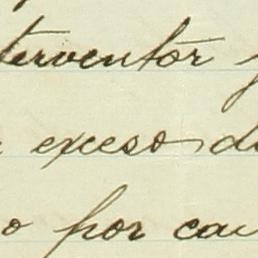 terventor
exceso d
o por cau